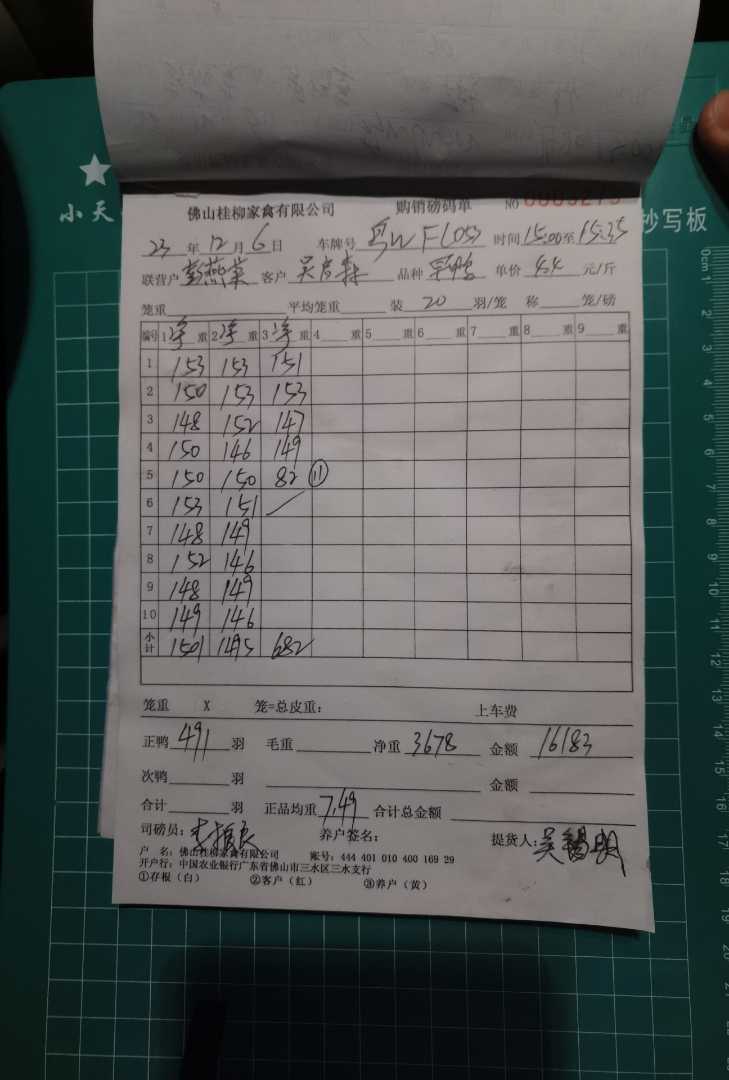 小天
抄写板
佛山桂柳家禽有限公司 购销磅码单 NO 0009275
23 年 12 月 6 日 车牌号 粤W FL053 时间 15:00 至 15:35
联营户 彭燕荣 客户 品种 单价 4.4 元/斤
笼重 平均笼重 装 20 羽/笼 称 笼/磅
编号 1 净 重 2 净 重 3 净 重 4 重 5 重 6 重 7 重 8 重 9 重
1 153 153 151
2 150 153 153
3 148 152 147
4 150 146 149
5 150 150 82 ⑪
6 153 151
7 148 149
8 152 146
9 148 149
10 149 146
小计 1501 1495 682
笼重 X 笼=总皮重: 上车费
正鸭 491 羽 毛重 净重 3678 金额 16183
次鸭 羽 金额
合计 羽 正品均重 7.49 合计总金额
司磅员: 李振良 养户签名: 提货人: 吴锡明
户 名: 佛山桂柳家禽有限公司 账号: 444 401 010 400 169 29
开户行: 中国农业银行广东省佛山市三水区三水支行
①存根（白） ②客户（红） ③养户（黄）